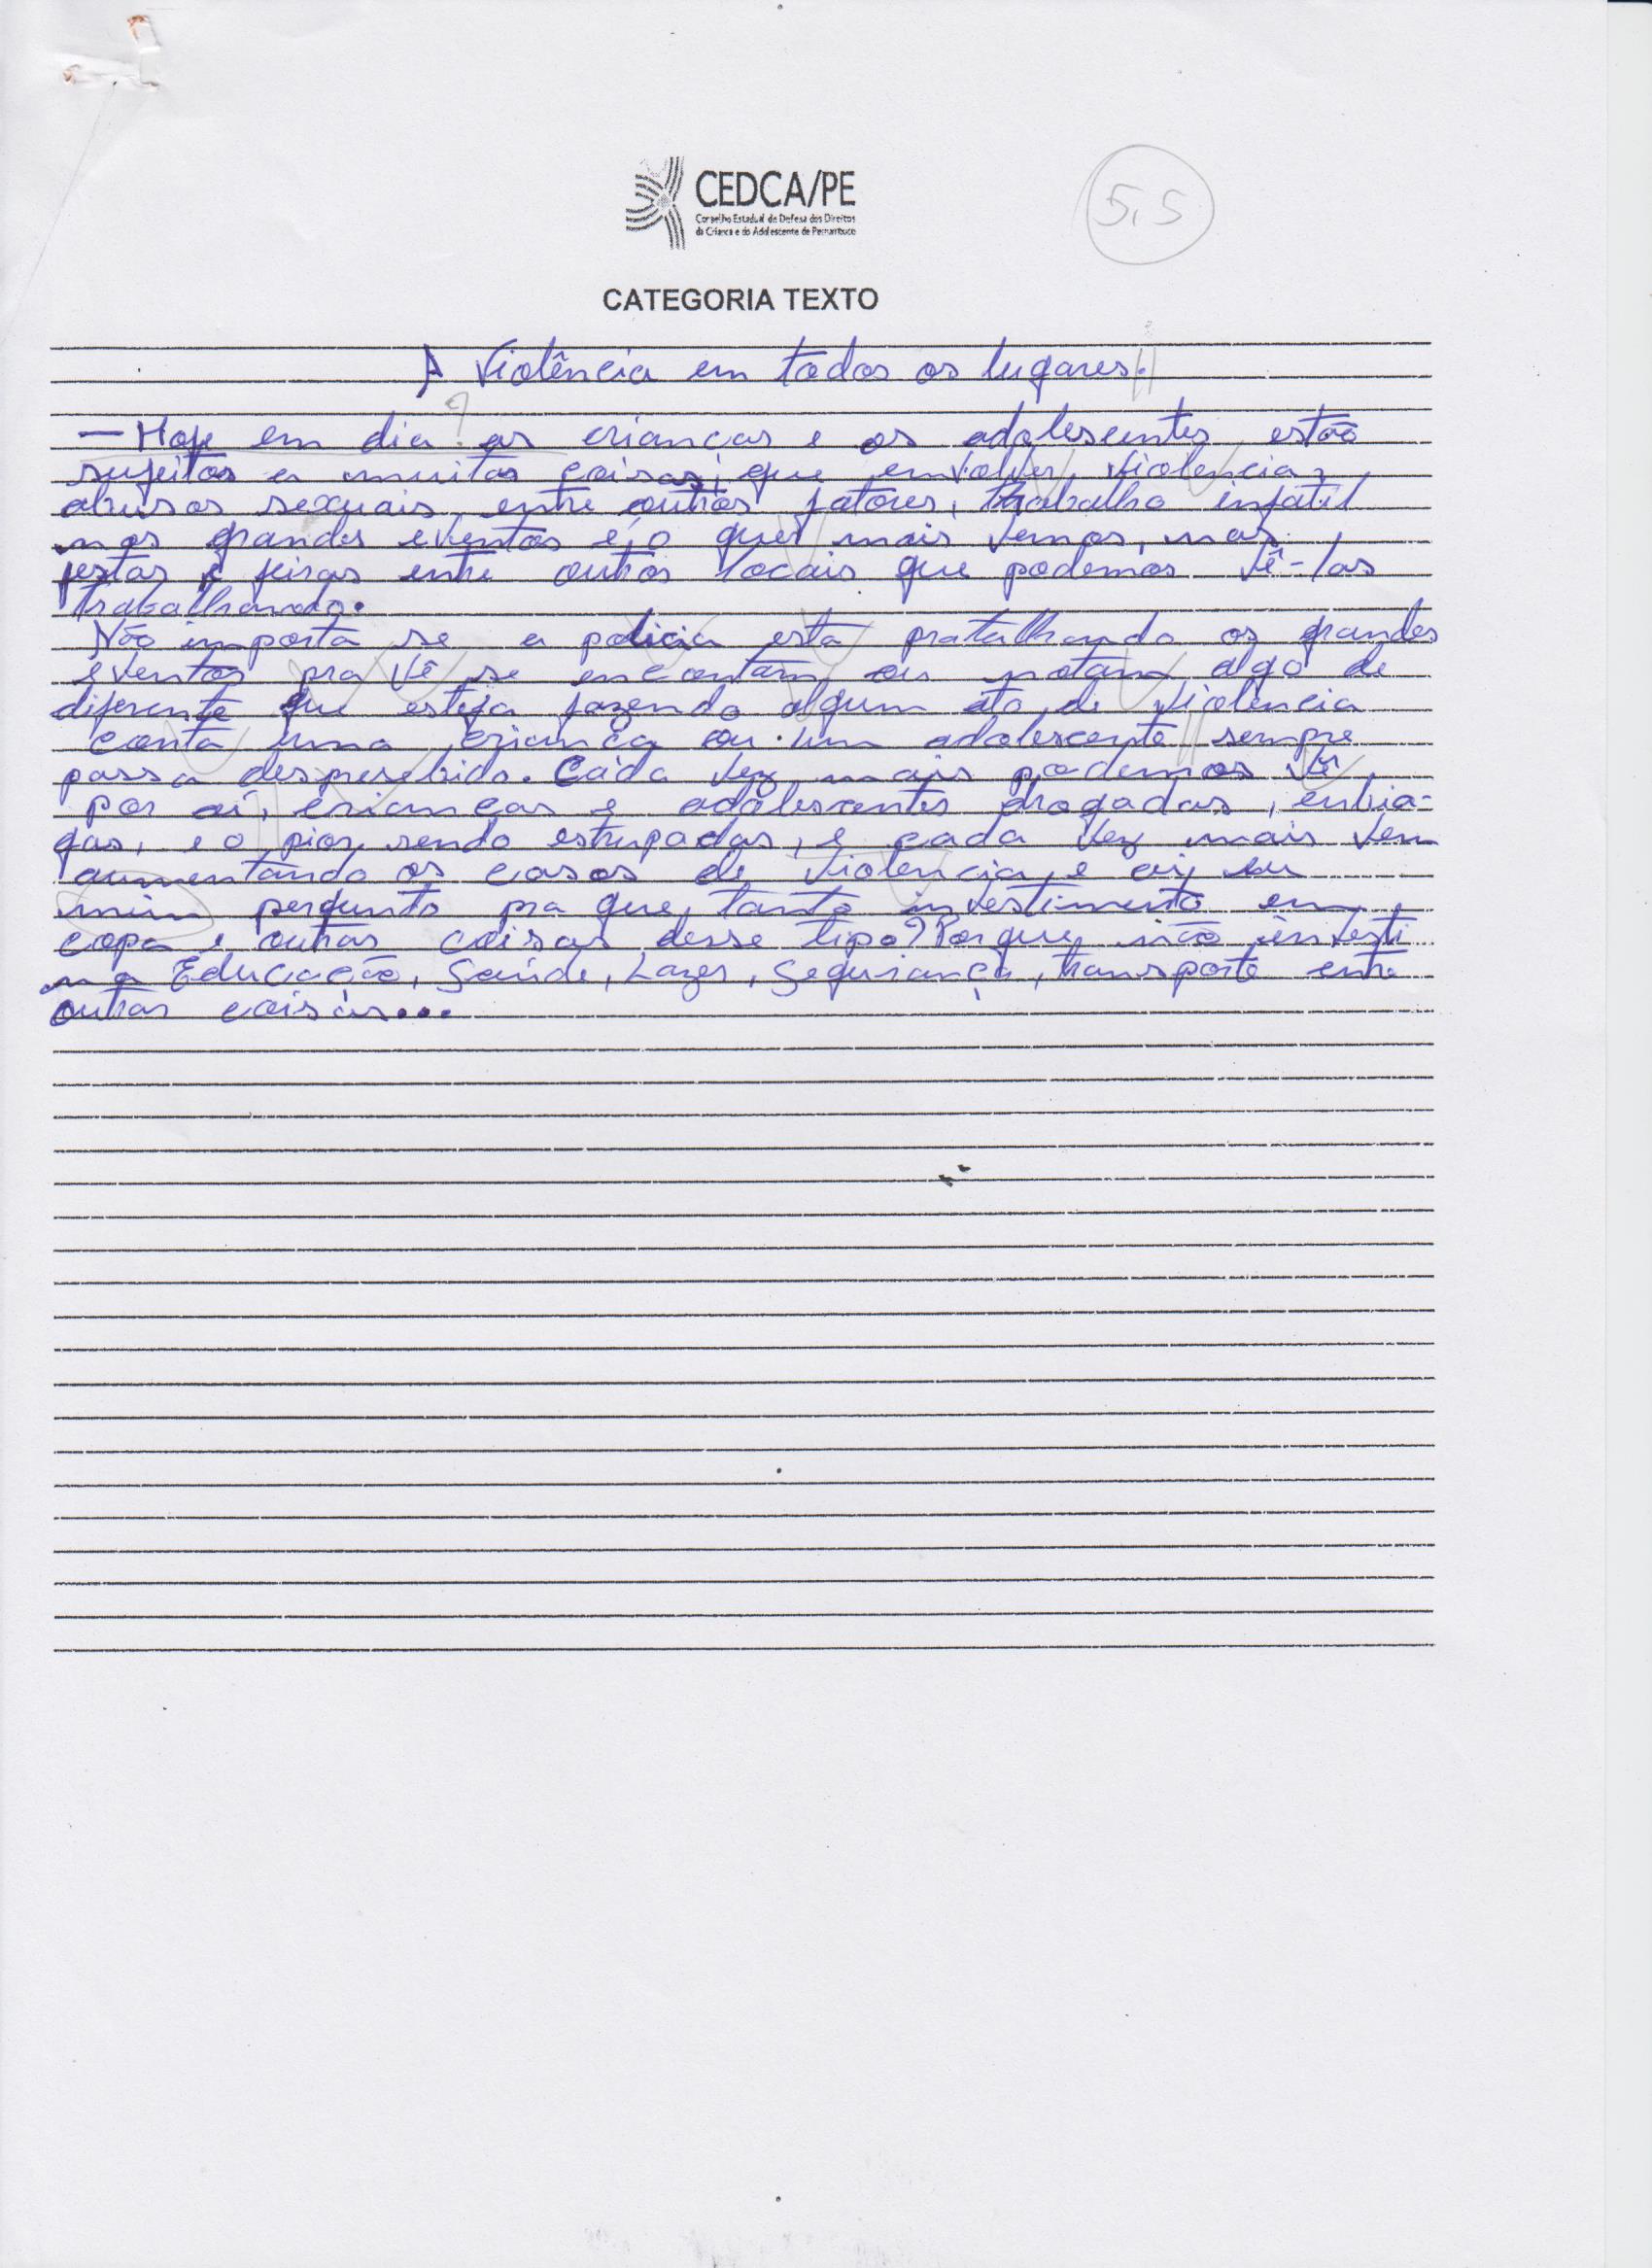 CEDCA/PE
Conselho Estadual de Defesa dos Direitos
da Criança e do Adolescente de Pernambuco
5,5
CATEGORIA TEXTO
A Violência em todos os lugares.
?
— Hoje em dia as crianças e os adolescentes estão
sujeitos a muitas coisas, que envolver violencia,
abusos sexuais, entre outros fatores, trabalho infatil
nos grandes eventos é, o que mais vemos, nas
festas e feiras entre outros locais que podemos vê-las
trabalhando.
Não importa se a policia esta pratalhando os grandes
eventos pra vê se encontam ou notam algo de
diferente que esteja fazendo algum ato de violência
conta uma criança ou um adolescente sempre
passa despresebido. Cada vez mais podemos vê
por aí, crianças e adolescentes drogadas, enbria-
gas, e o pior sendo estrupadas, e cada vez mais vem
aumentando os casos de violencia, e aí, eu
mim pergunto pra que, tanto investimento em
copa e outras coisas desse tipo? Porque não investi
na Educação, Saúde, Lazer, Segurança, transporte entre
outras coisas...